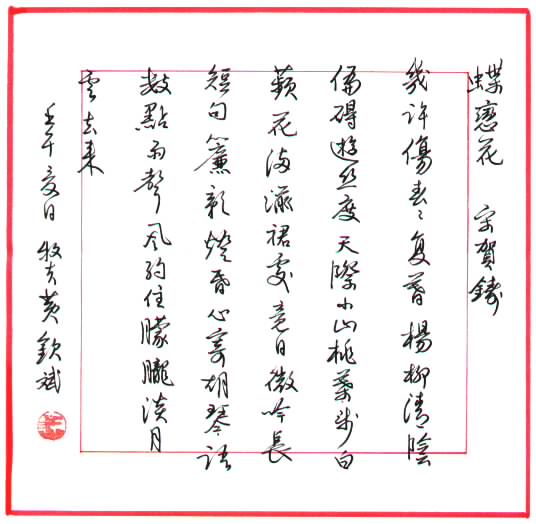 蝶戀花 宋賀鑄
幾許傷春々復暮楊柳清陰
偏礙遊絲度天際小山桃葉步白
蘋花滿湔裙處竟日微吟長
短句簾影燈昏心寄胡琴語
數點雨聲風約住朦朧淡月
雲去來
壬午夏日 黃欽斌